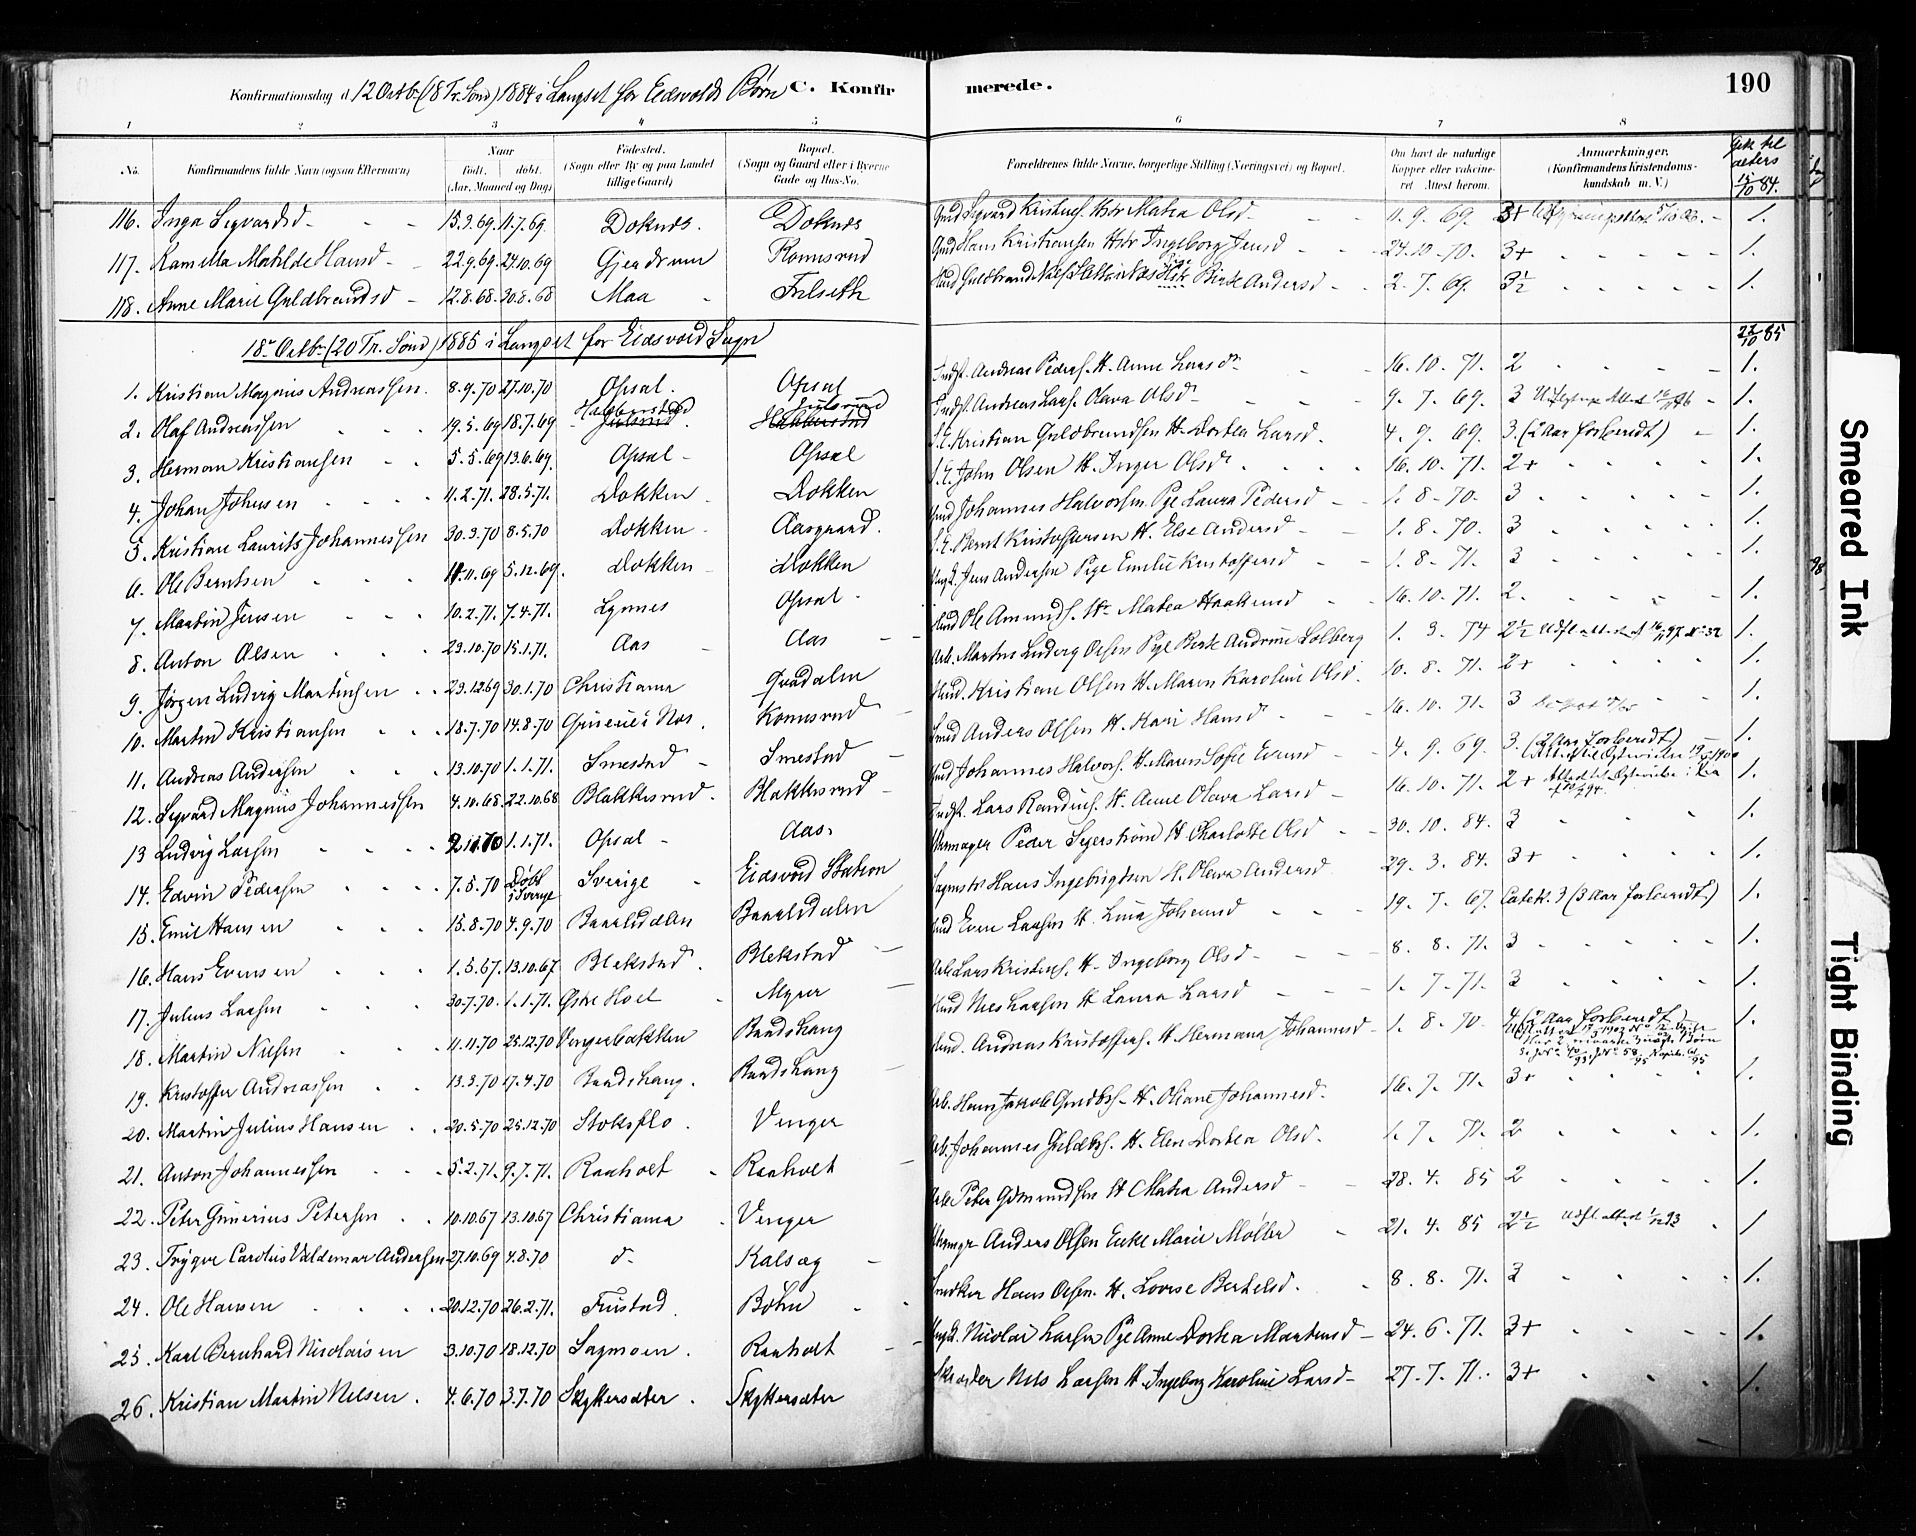 Konfirmationsdag d 12 Octb. (18 Tr. Sønd) 1884 i Langset for Eidsvolds Børn C. Konfirmerede. 190
1 2 3 4 5 6 7 8
No. Konfirmandens fulde Navn (ogsaa Efternavn) Naar født. døbt. (Aar, Maaned og Dag) Fødested. (Sogn eller By og paa Landet tillige Gaard) Bopæl. (Sogn og Gaard eller i Byerne Gade og Hus-No. Forældrenes fulde Navne, borgerlige Stilling (Næringsvei) og Bopæl. Om havt de naturlige Kopper eller vakcineret Attest herom. Anmærkninger. (Konfirmandens Kristendomskundskab m. V.) Gik til alters 15/10 84.
116. Inga Sigvardsd. 15.3.69 11.7.69 Doknes. Doknes Sigvard Matea Olsd 11. 9. 69. 3+ 1.
117. Kamilla Mathilde Hansd 22.9.69 24.10.69 Gjerdrum Romsrud Hans Kristiansen Ingeborg Jensd 24. 10. 70. 3+ 1.
118. Anne Marie Guldbrandsd 12.8.68 30.8.68 Maa Julseth Guldbrand Pige Berte Andersd 2. 7. 69. 3½ 1.
18de Octb. (20 Tr. Sønd) 1885 i Langset for Eidsvold Sogn 22/10 85
1. Kristian Magnus Andreassen. 8.9.70 27.10.70 Opsal. Opsal Indst. Andreas Peders. H. Anne Larsdr 16. 10. 71. 2 1.
2. Olaf Andreassen 19.5.69 18.7.69 Julsrud Julsrud Indst. Andreas Lars. Olava Olsd 9. 7. 69. 3 1.
3. Herman Kristiansen 5.5.69 13.6.69. Opsal Opsal S.E. Kristian Guldbrandsen H. Dortea Larsd. 4. 9. 69. 3. (2 Aar forberedt) 1.
4. Johan Johnsen 11.2.71. 28.5.71. Dokken Dokken S.E. John Olsen H. Inger Olsdr. 16. 10. 71. 2+ 1.
5. Kristian Laurits Johannessen 30.3.70 8.5.70 Dokken Aasgaard. Johannes Halvorsen Pge Laura Pedersd 1. 8. 70. 3 1.
6. Ole Berntsen 11.69 5.12.69. Dokken Dokken S.E. Bernt Kristoffersen H. Else Andersd 1. 8. 70. 3 1.
7. Martin Jensen 10.2.71. 7.4.71. Lynnes Opsal Ungk. Jens Andersen Pige Emilie Kristoffersd 1. 8. 71. 3 1.
8. Anton Olsen 23.10.70 15.1.71. Aas Aas Ole Amunds. H. Matea Haakensd 16. 10. 71. 2. 1.
9. Jørgen Ludvig Martinsen 29.12.69 30.1.70 Christiania Qvadalen Arb. Martin Ludvig Olsen Pge Berte Andrine Solberg 1. 3. 74 2½ 1.
10. Martin Kristiansen 18.7.70 14.8.70 Komsrud Kristian Olsen H. Maren Karoline Olsd. 10. 8. 71. 2+ 1.
11. Andreas Andersen 13.10.70 1.1.71. Smestad Smestad Anders Olsen H. Kari Hansd 16. 10. 71. 3 1.
12. Sigvard Magnus Johannessen 4.10.68 22.10.68 Blakkesrud. Blakkesrud Johannes Halvors. H. Maren Sofie Evensd 4. 9. 69. 3. (2 Aar forberedt) 1.
13 Ludvig Larsen 1.1.71. Opsal Aas Indst. Lars H. Anne Olava Larsd 16. 10. 71. 2+ 1.
14. Edvin Pedersen 7.5.70 Døbt i Sverige Sverige Eidsvold Station Uhrmager Peder Segerstrøm H. Charlotte Olsd 30. 10. 84. 3 1.
15. Emil Hansen 15.8.70 4.9.70 Baarlidalen Baarlidalen Hans Ingebrigtsen H. Olava Andersd 29. 3. 84. 3+ 1.
16. Hans Evensen 1.5.67. 13.10.67 Blekstad. Blekstad Even Larsen H. Lina Johnsd 19. 7. 67. Catek. 3 (3 Aar forberedt) 1.
17. Julius Larsen 30.7.70. 1.1.71. Østre Hoel Myrer Arb Lars Kristens. H. Ingeborg Olsd 8. 8. 71. 3 1.
18. Martin Nilsen 11.11.70 25.12.70 Vengerbakken Baardshaug Nils Larsen H. Laura Larsd 1. 7. 71. 3 1.
19. Kristoffer Andreassen 13.3.70 17.4.70 Baardshaug. Baardshaug Andreas Kristoffers. H. Hermana Johannesd 1. 8. 70. 4 (2 Aar forberedt) 1.
20. Martin Julius Hansen 20.5.70 25.12.70 Stoksflo. Venger Arb. Hans Jakob Guldbs. H. Oliane Johannesd. 16. 7. 71. 3+ 1.
21. Anton Johannessen 5.2.71. 9.7.71. Raaholt Raaholt Arb. Johannes Guldbs. H. Elen Dortea Olsd. 1. 7. 71. 2 1.
22. Peter Gunerius Petersen 10.10.67 13.10.67 Christiania Venger Arb Peter Gudmundsen H. Matea Andersd 28. 4. 85 2 1.
23. Trygve Carolius Valdemar Andersen 27.10.69 4.8.70 d. Kalsæg Anders Olsen Enke Marie Møller 21. 4. 85 2½ 1
24. Ole Hansen 20.12.70 26.2.71. Finstad. Bøhn Snedker Hans Olsen. H. Lovise Berthelsd. 8. 8. 71. 3 1.
25. Karl Bernhard Nicolaisen 3.10.70 18.12.70 Sagmoen. Raaholt Ungk. Nicolai Larsen Pge Anne Dortea Martinsd 24. 6. 71. 3+ 1.
26. Kristian Martin Nilsen. 4.6.70 3.7.70 Skyttersæter. Skyttersæter Skræder Nils Larsen H. Ingeborg Karoline Larsd 27. 7. 71. 3+ 1.
Smeared Ink
Tight Binding